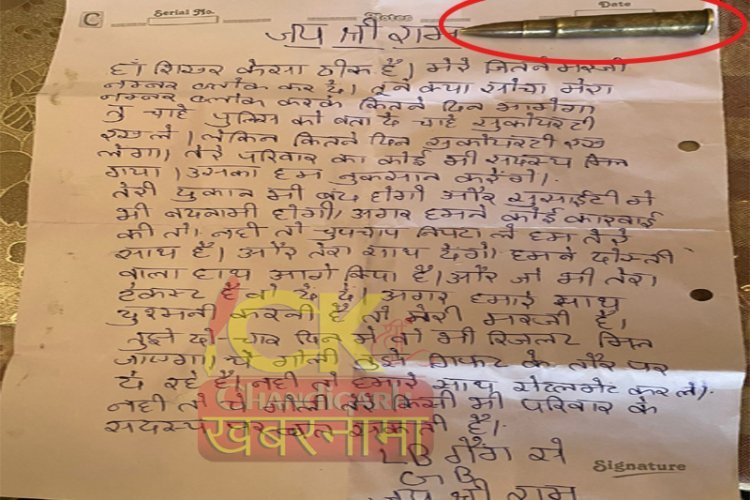 Serial No.
Notes
Date
C
जय श्री राम
हाँ शिखर कैसा ठीक है। मेरे जितने मरजी
नम्बर ब्लोक कर दे। तूने क्या सोचा मेरा
नम्बर ब्लोक करके कितने दिन भागेगा
तु चाहे पुलिस को बता दे चाहे सुकोयरटी
रख ले। लेकिन कितने दिन सुकोयरटी रख
लेगा। तेरे परिवार का कोई भी सदस्य मिल
गया। उसका हम नुकसान करेंगे।
तेरी दुकान भी बंद होगी और सुसाईटी मे
भी बदनामी होगी। अगर हमने कोई कारवाई
की तो। नही तो चुपचाप निपटा ले हम तेरे
साथ है। और तेरा साथ देगे। हमने दोस्ती
वाला हाथ आगे किया है। और जो भी तेरा
टेकस्ट है वो दे दे। अगर हमारे साथ
दुश्मनी करनी है तो तेरी मरजी है।
तुझे दो चार दिन मे वो भी रिजलट मिल
जाएगा। ये गोली तुझे गिफट के तौर पर
दे रहे है। नही तो हमारे साथ सेटलमेंट कर ले।
नही तो ये गोली तेरे किसी भी परिवार के
सदस्य पर चल सकती है।
LB गैंग से
G B
जय श्री राम
Signature
CK
CHANDIGARH
खबरनामा